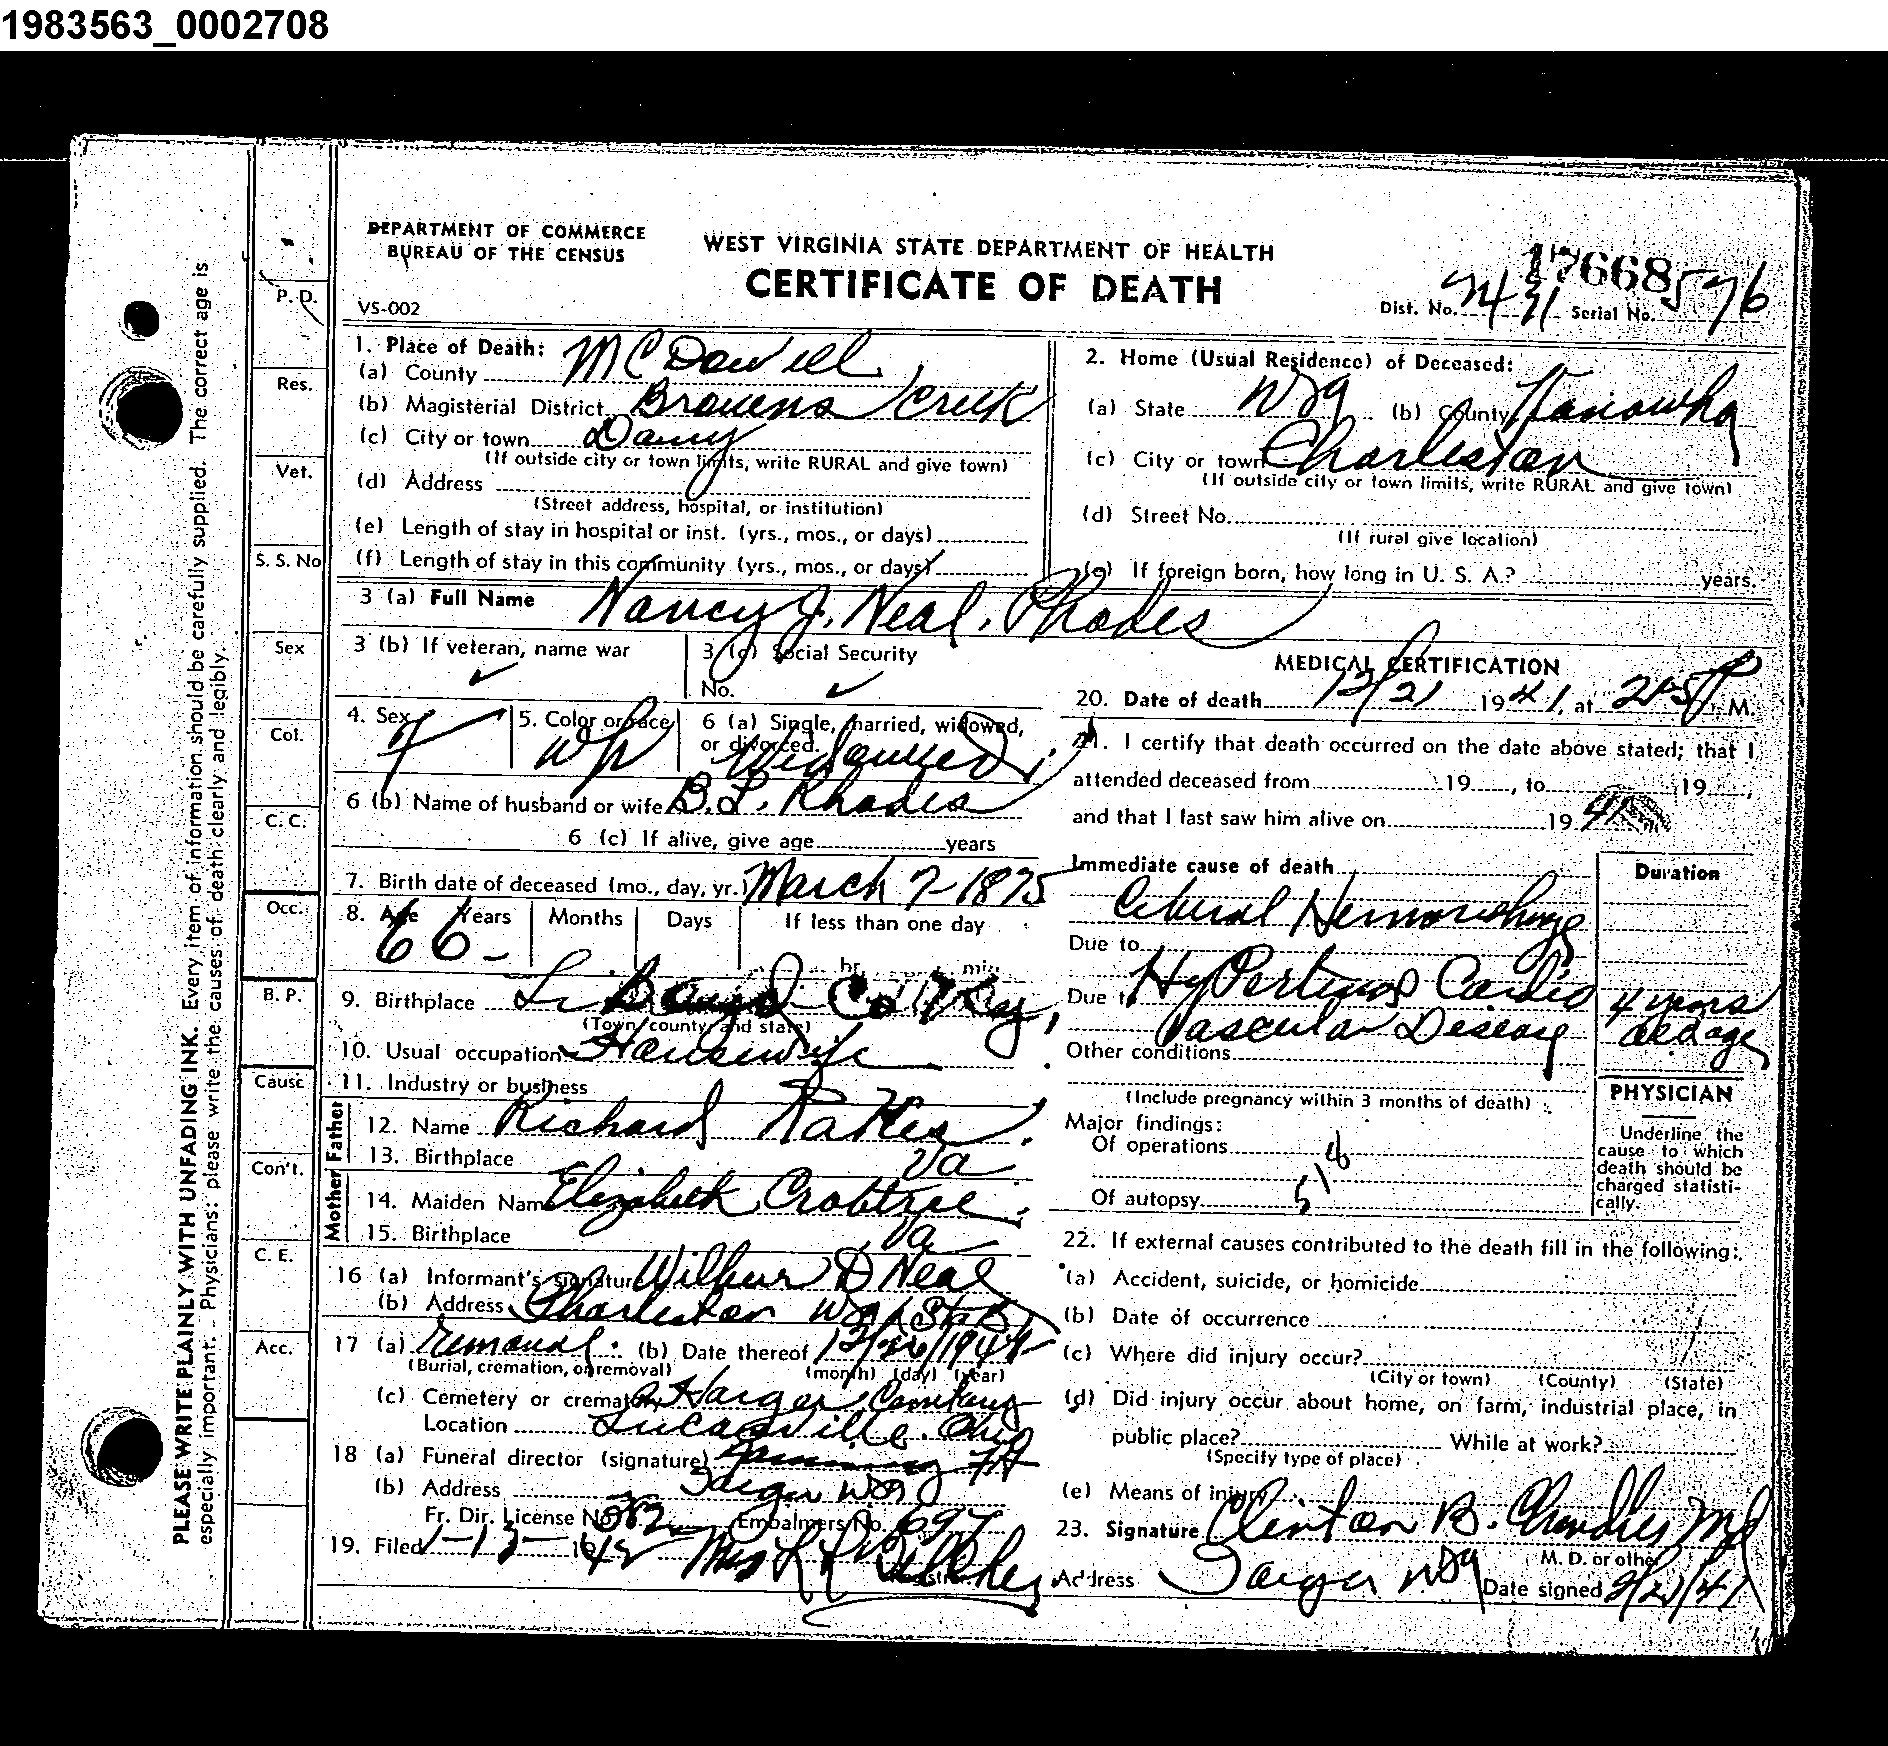 1983563_0002708
DEPARTMENT OF COMMERCE
BUREAU OF THE CENSUS
WEST VIRGINIA STATE DEPARTMENT OF HEALTH
CERTIFICATE OF DEATH
17668
VS-002
Dist. No. Serial No. 576
1. Place of Death:
(a) County McDowell
(b) Magisterial District Browns Creek
(c) City or town Davy
(If outside city or town limits, write RURAL and give town)
(d) Address
(Street address, hospital, or institution)
(e) Length of stay in hospital or inst. (yrs., mos., or days)
(f) Length of stay in this community (yrs., mos., or days)
2. Home (Usual Residence) of Deceased:
(a) State W Va (b) County Kanawha
(c) City or town Charleston
(If outside city or town limits, write RURAL and give town)
(d) Street No.
(If rural give location)
(e) If foreign born, how long in U. S. A.? years.
3 (a) Full Name Nancy J. Neal. Rhodes
3 (b) If veteran, name war
3 (c) Social Security
No.
4. Sex F
5. Color or Race Wh
6 (a) Single, married, widowed,
or divorced. Widowed
6 (b) Name of husband or wife B. L. Rhodes
6 (c) If alive, give age years
7. Birth date of deceased (mo., day, yr.) March 7-1875
8. Age Years Months Days If less than one day
66 - hr. min.
9. Birthplace Boyd Co Ky
(Town, county, and state)
10. Usual occupation Housewife
11. Industry or business
Father
12. Name Richard Rakes
13. Birthplace Va
Mother
14. Maiden Name Elizabeth Crabtree
15. Birthplace Va
16 (a) Informant's signature Wilbur D Neal
(b) Address Charleston W Va
17 (a) Removal (b) Date thereof
(Burial, cremation, or removal) (month) (day) (year)
(c) Cemetery or crematory
Location Lucasville. Ohio
18 (a) Funeral director (signature)
(b) Address Iaeger W Va
Fr. Dir. License No. 382 Embalmers No. 697
19. Filed 1-13-1942 Mrs
Registrar
MEDICAL CERTIFICATION
20. Date of death 12/21 1941, at P. M.
21. I certify that death occurred on the date above stated; that I
attended deceased from 19, to 19,
and that I last saw him alive on 1941
Immediate cause of death
Duration
Cerebral Hemorrhage
Due to
Due to Hypertensive Cardio
Vascular Disease
4 years
old age
Other conditions
(Include pregnancy within 3 months of death)
Major findings:
Of operations
Of autopsy
PHYSICIAN
Underline the
cause to which
death should be
charged statisti-
cally.
22. If external causes contributed to the death fill in the following:
(a) Accident, suicide, or homicide
(b) Date of occurrence
(c) Where did injury occur?
(City or town) (County) (State)
(d) Did injury occur about home, on farm, industrial place, in
public place? While at work?
(Specify type of place)
(e) Means of injury
23. Signature Clinton B. MD
M. D. or other
Address Iaeger W Va Date signed
P. D.
Res.
Vet.
S. S. No
Sex
Col.
C. C.
Occ.
B. P.
Cause
Con't.
C. E.
Acc.
PLEASE WRITE PLAINLY WITH UNFADING INK. Every item of information should be carefully supplied. The correct age is
especially important. Physicians: please write the causes of death clearly and legibly.